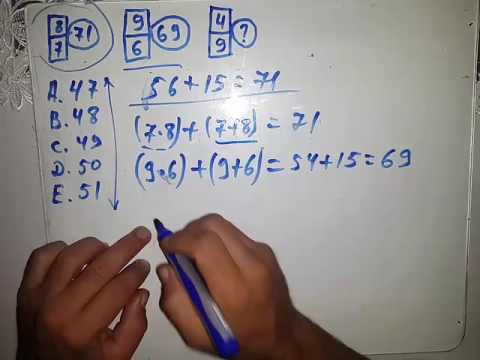 8 7 71
9 6 69
4 9 ?
A. 47
B. 48
C. 49
D. 50
E. 51
56 + 15 = 71
(7·8) + (7+8) = 71
(9·6) + (9+6) = 54 + 15 = 69